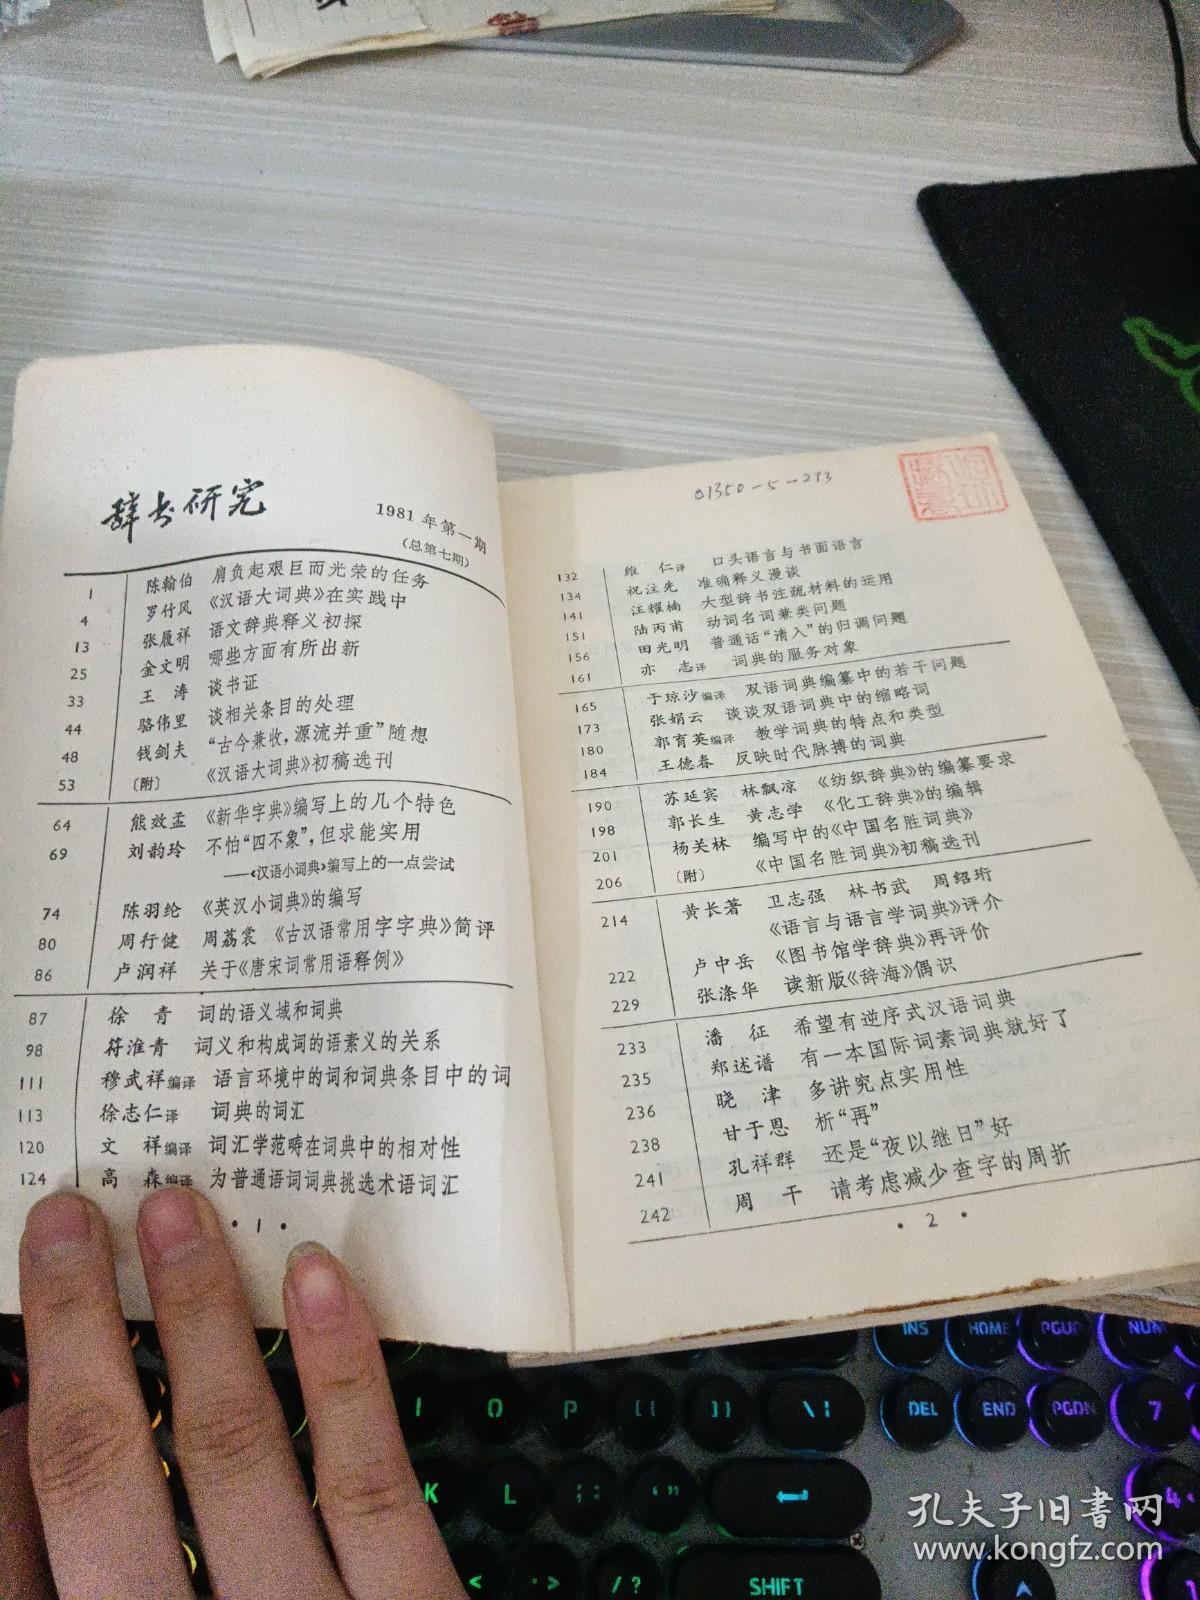 辞书研究
1981年第一期
(总第七期)
1 陈翰伯 肩负起艰巨而光荣的任务
4 罗竹风 《汉语大词典》在实践中
13 张履祥 语文辞典释义初探
25 金文明 哪些方面有所出新
33 王涛 谈书证
44 骆伟里 谈相关条目的处理
48 钱剑夫 “古今兼收,源流并重”随想
53 〔附〕 《汉语大词典》初稿选刊
64 熊效孟 《新华字典》编写上的几个特色
69 刘韵玲 不怕“四不象”,但求能实用
——《汉语小词典》编写上的一点尝试
74 陈羽纶 《英汉小词典》的编写
80 周行健 周荔裳 《古汉语常用字字典》简评
86 卢润祥 关于《唐宋词常用语释例》
87 徐青 词的语义域和词典
98 符淮青 词义和构成词的语素义的关系
111 穆武祥编译 语言环境中的词和词典条目中的词
113 徐志仁译 词典的词汇
120 文祥编译 词汇学范畴在词典中的相对性
124 高森编译 为普通语词词典挑选术语词汇
• 1 •
01350-5-273
132 维仁译 口头语言与书面语言
134 祝注先 准确释义漫谈
141 汪耀楠 大型辞书注疏材料的运用
151 陆丙甫 动词名词兼类问题
156 田光明 普通话“清入”的归调问题
161 亦志译 词典的服务对象
165 于琼沙编译 双语词典编纂中的若干问题
173 张娟云 谈谈双语词典中的缩略词
180 郭育英编译 教学词典的特点和类型
184 王德春 反映时代脉搏的词典
190 苏延宾 林飘凉 《纺织辞典》的编纂要求
198 郭长生 黄志学 《化工辞典》的编辑
201 杨关林 编写中的《中国名胜词典》
206 〔附〕 《中国名胜词典》初稿选刊
214 黄长著 卫志强 林书武 周绍珩
《语言与语言学词典》评介
222 卢中岳 《图书馆学辞典》再评价
229 张涤华 读新版《辞海》偶识
233 潘征 希望有逆序式汉语词典
235 郑述谱 有一本国际词素词典就好了
236 晓津 多讲究点实用性
238 甘于恩 析“再”
241 孔祥群 还是“夜以继日”好
242 周干 请考虑减少查字的周折
• 2 •
INS HOME PGUP NUM
I O P [{ ]} \| DEL END PGDN 7
K L ;: ‘” 4
< .> /? SHIFT
孔夫子旧书网
www.kongfz.com